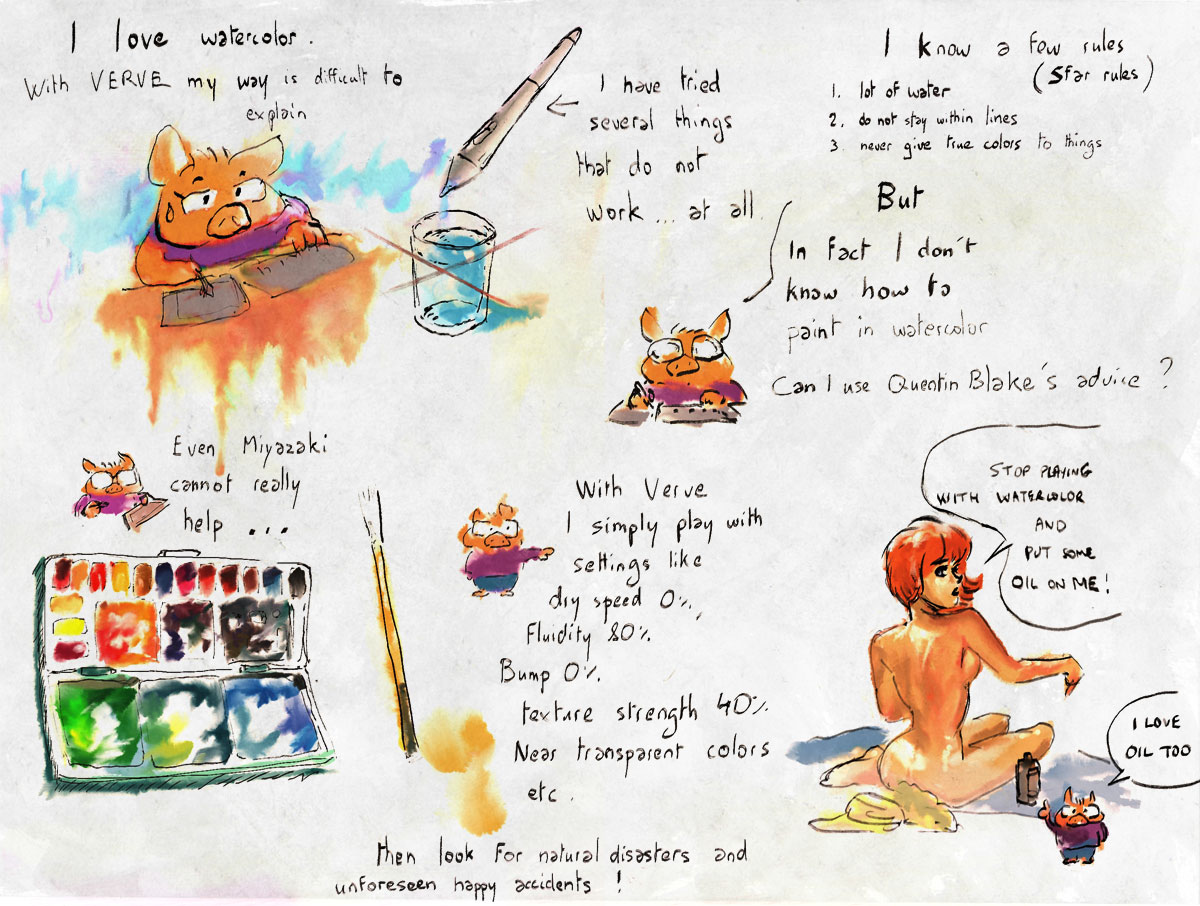 I love watercolor.
With VERVE my way is difficult to
explain
I have tried
several things
that do not
work ... at all
I know a few rules
(Sfar rules)
1. lot of water
2. do not stay within lines
3. never give true colors to things
But
In fact I don't
know how to
paint in watercolor
Can I use Quentin Blake's advice ?
Even Miyazaki
cannot really
help ...
With Verve
I simply play with
settings like
dry speed 0%
Fluidity 80%
Bump 0%
texture strength 40%
Near transparent colors
etc.
STOP PLAYING
WITH WATERCOLOR
AND
PUT SOME
OIL ON ME!
I LOVE
OIL TOO
then look for natural disasters and
unforeseen happy accidents !